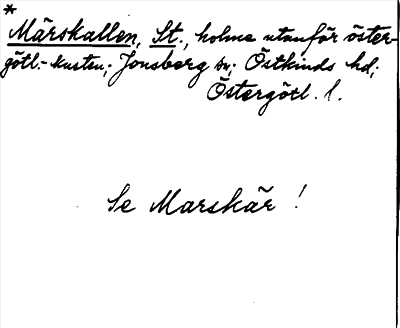 *
Märskallen, St., holme utanför öster-
götl.-kusten; Jonsberg sn; Östkinds hd;
Östergötl. l.
Se Marskär!